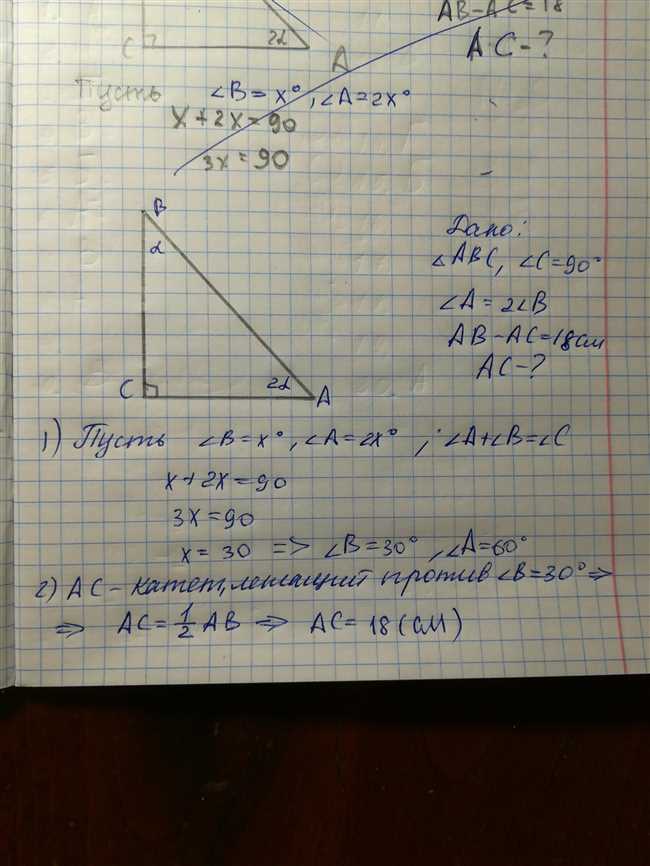 AB-AC=18
C 2α A
AC-?
Пусть ∠B=x°, ∠A=2x°
x+2x=90
3x=90
B
α
Дано:
∠ABC, ∠C=90°
∠A=2∠B
AB-AC=18см
AC-?
C 2α A
1) Пусть ∠B=x°, ∠A=2x° ; ∠A+∠B=∠C
x+2x=90
3x=90
x=30 => ∠B=30°, ∠A=60°
2) AC-катет, лежащий против ∠B=30° =>
=> AC=1/2 AB => AC=18(см)